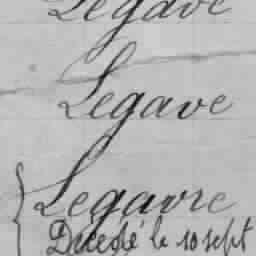 Legave
Legave
Legavre
Décédé le 10 sept